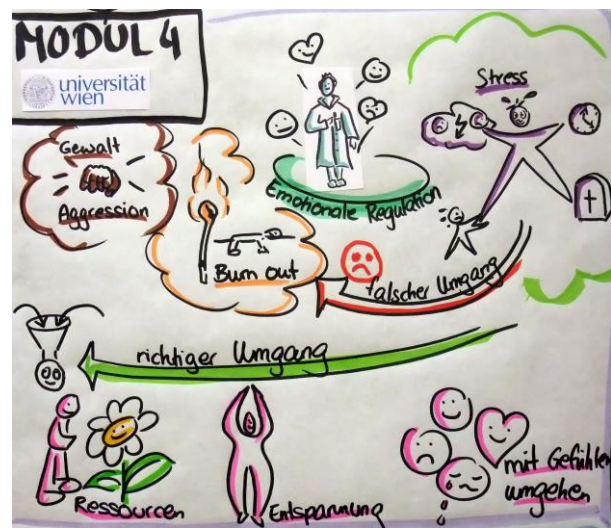 MODUL 4
universität
wien
Gewalt
Aggression
Burn out
Emotionale Regulation
Stress
falscher Umgang
richtiger Umgang
Ressourcen
Entspannung
mit Gefühlen
umgehen